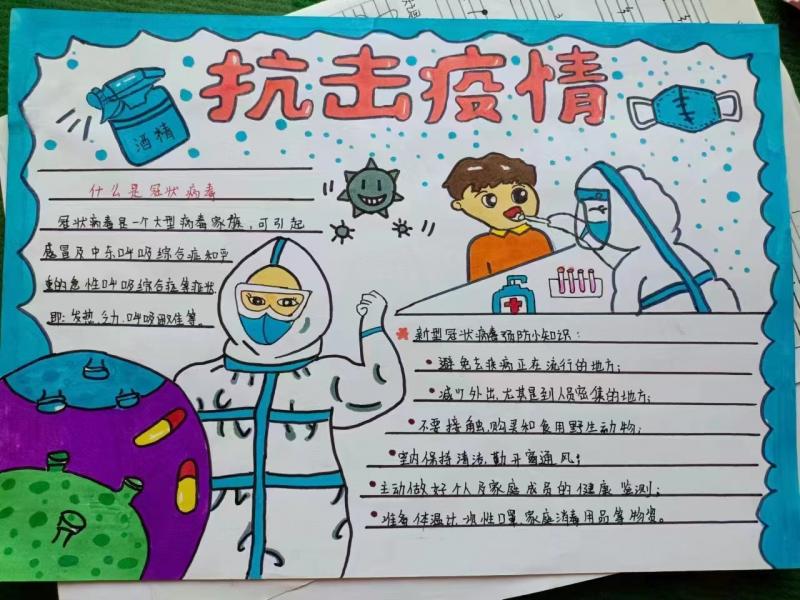 抗击疫情
酒精
什么是冠状病毒
冠状病毒是一个大型病毒家族,可引起
感冒及中东呼吸综合症和严
重的急性呼吸综合症等症状
即:发热、乏力、呼吸困难等。
新型冠状病毒预防小知识:
·避免去疾病正在流行的地方;
·减少外出,尤其是到人员密集的地方;
·不要接触、购买和食用野生动物;
·室内保持清洁,勤开窗通风;
·主动做好个人及家庭成员的健康监测;
·准备体温计、一次性口罩、家庭消毒用品等物资。